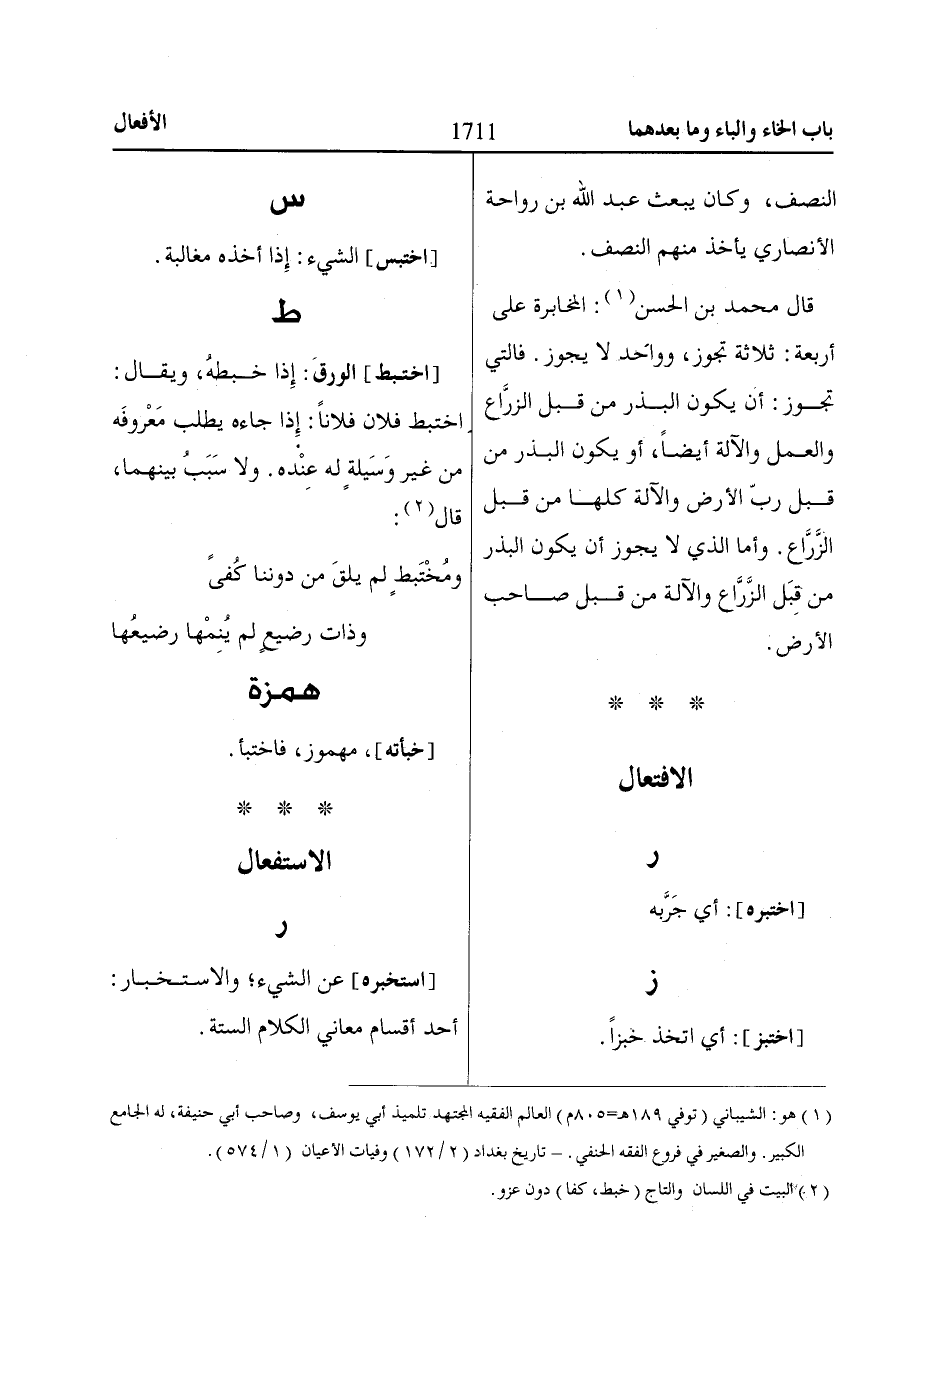 باب الخاء والباء وما بعدهما
1711
الأفعال
النصف، وكان يبعث عبد الله بن رواحة
الأنصاري يأخذ منهم النصف.
قال محمد بن الحسن(١): المخابرة على
أربعة: ثلاثة تجوز، وواحد لا يجوز. فالتي
تجوز: أن يكون البذر من قبل الزرَّاع
والعمل والآلة أيضاً، أو يكون البذر من
قبل ربّ الأرض والآلة كلها من قبل
الزَّرَّاع. وأما الذي لا يجوز أن يكون البذر
من قِبَل الزَّرَّاع والآلة من قبل صاحب
الأرض.
* * *
الافتعال
ر
[اختبره]: أي جَرَّبه
ز
[اختبز]: أي اتخذ خبزاً.
س
[اختبس] الشيء: إذا أخذه مغالبة.
ط
[اختبط] الورقَ: إذا خبطهُ، ويقال:
اختبط فلان فلاناً: إذا جاءه يطلب مَعْرُوفَه
من غير وَسَيلةٍ له عِنْده. ولا سَبَبُ بينهما،
قال(٢):
ومُخْتَبطٍ لم يلقَ من دوننا كُفىً
وذات رضيعٍ لم يُنِمْها رضيعُها
همزة
[خبأته]، مهموز، فاختبأ.
* * *
الاستفعال
ر
[استخبره] عن الشيء؛ والاستخبار:
أحد أقسام معاني الكلام الستة.
(١) هو: الشيباني (توفي ١٨٩هـ=٨٠٥م) العالم الفقيه المجتهد تلميذ أبي يوسف، وصاحب أبي حنيفة، له الجامع
الكبير. والصغير في فروع الفقه الحنفي. – تاريخ بغداد (٢/ ١٧٢) وفيات الأعيان (١/ ٥٧٤).
(٢) البيت في اللسان والتاج (خبط، كفا) دون عزو.